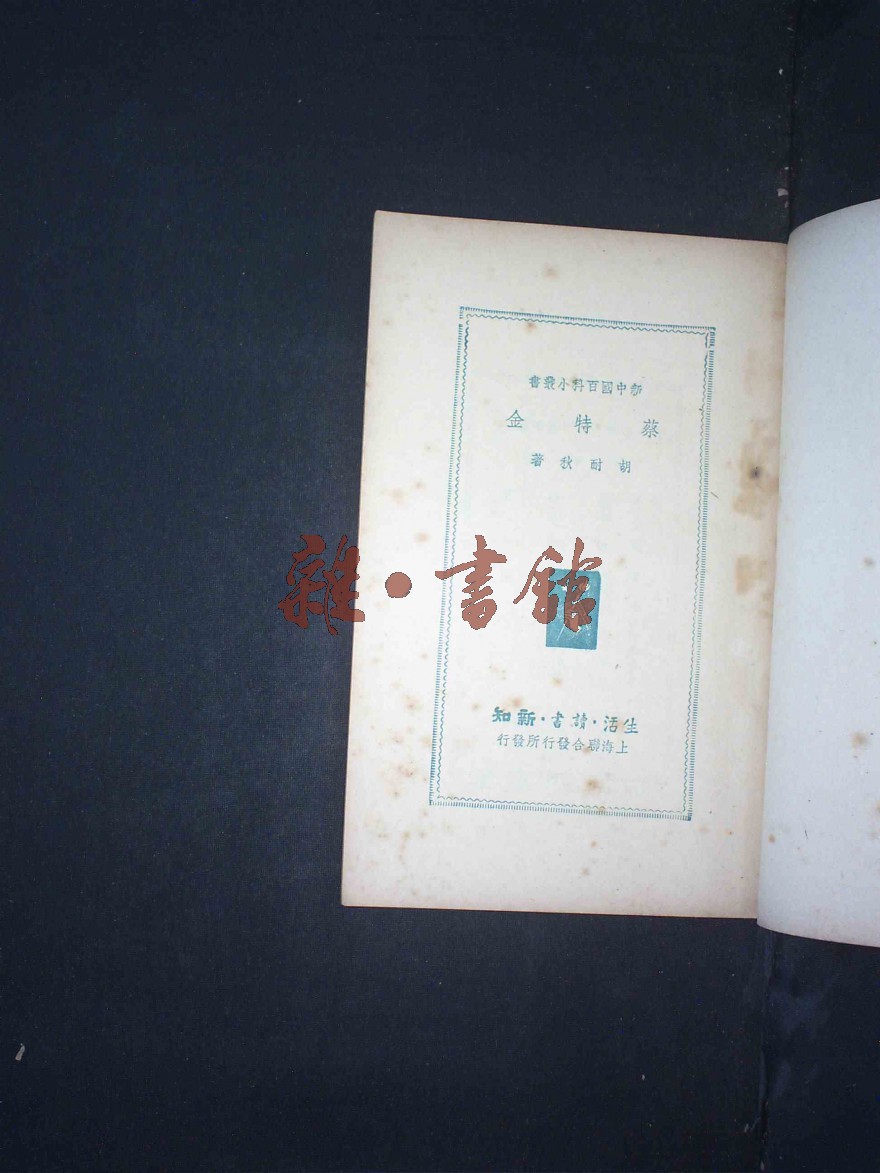 新中國百科小叢書
蔡特金
胡耐秋著
雜·書館
生活·讀書·新知
上海聯合發行所發行